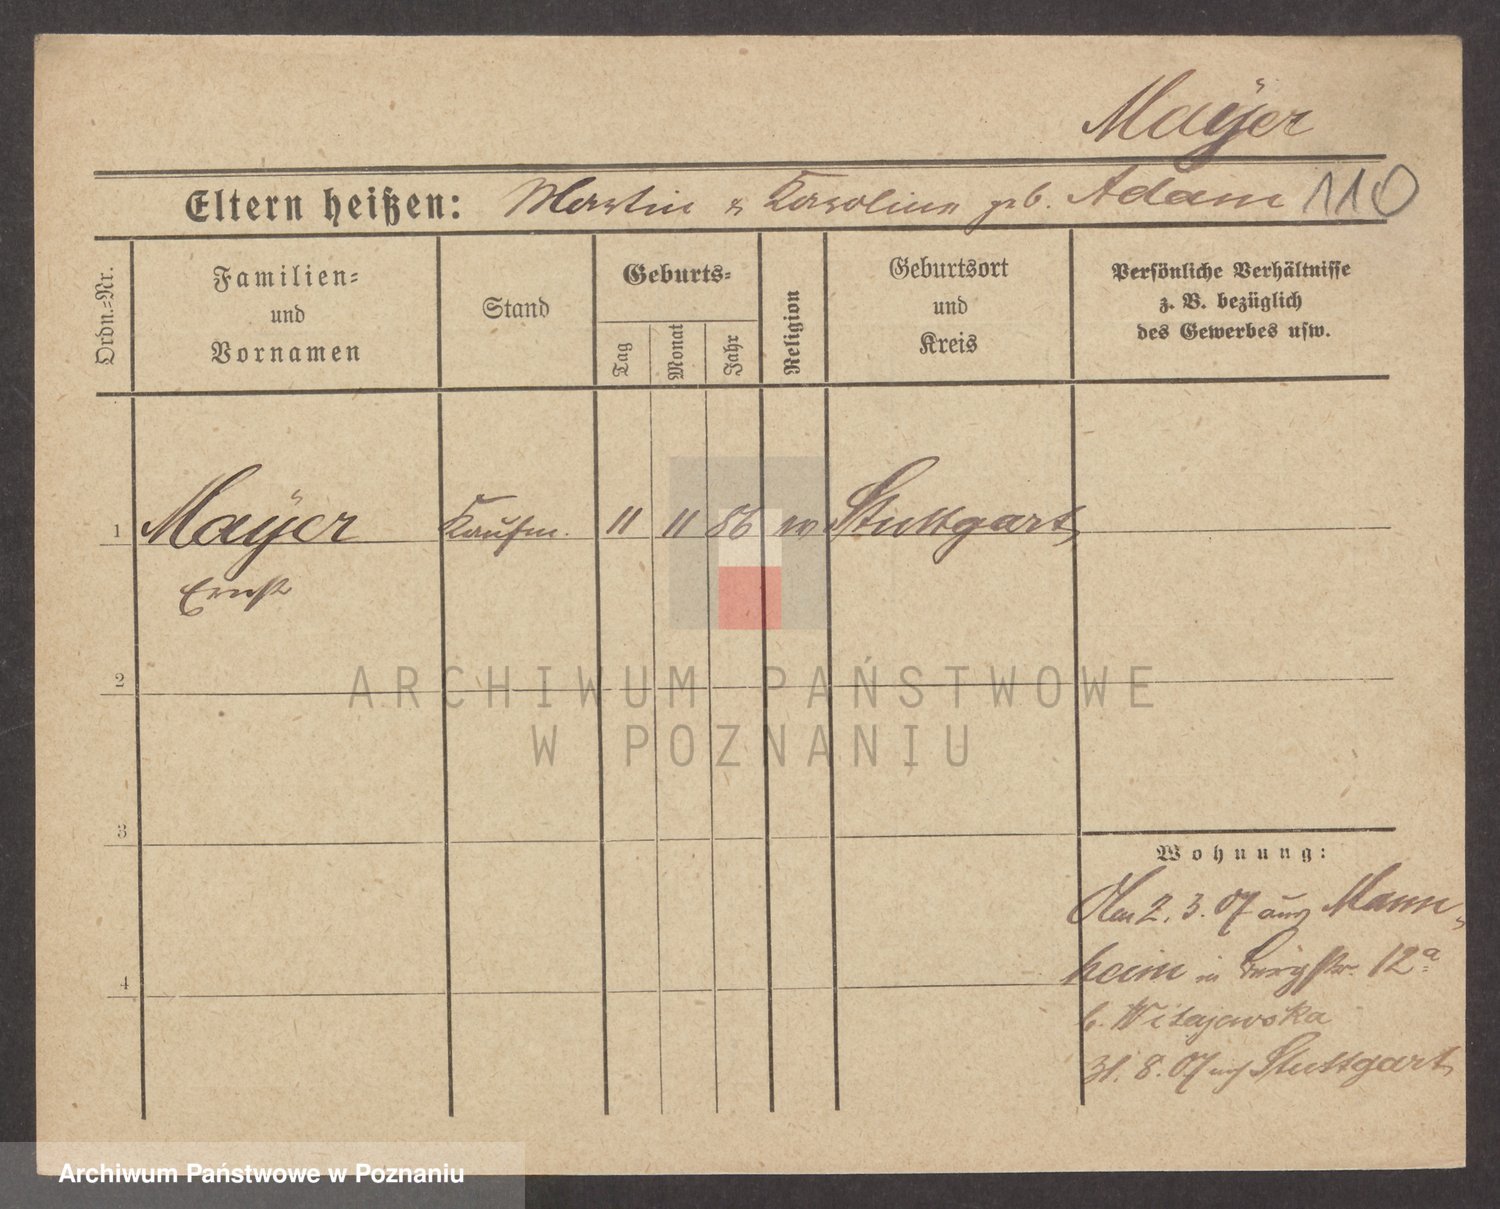 Mayer
Eltern heißen: Martin & Karoline geb. Adam 110
Ordn.-Nr.
Familien-
und
Vornamen
Stand
Geburts-
Tag
Monat
Jahr
Religion
Geburtsort
und
Kreis
Persönliche Verhältnisse
z. B. bezüglich
des Gewerbes usw.
1 Mayer Kaufm. 11 11 86 Stuttgart
Ernst
2
ARCHIWUM PAŃSTWOWE
W POZNANIU
3
Wohnung:
2. 3. 07 aus Mann-
4
heim in Bergstr. 12a
b. Witajewska
31. 8. 07 Stuttgart
Archiwum Państwowe w Poznaniu